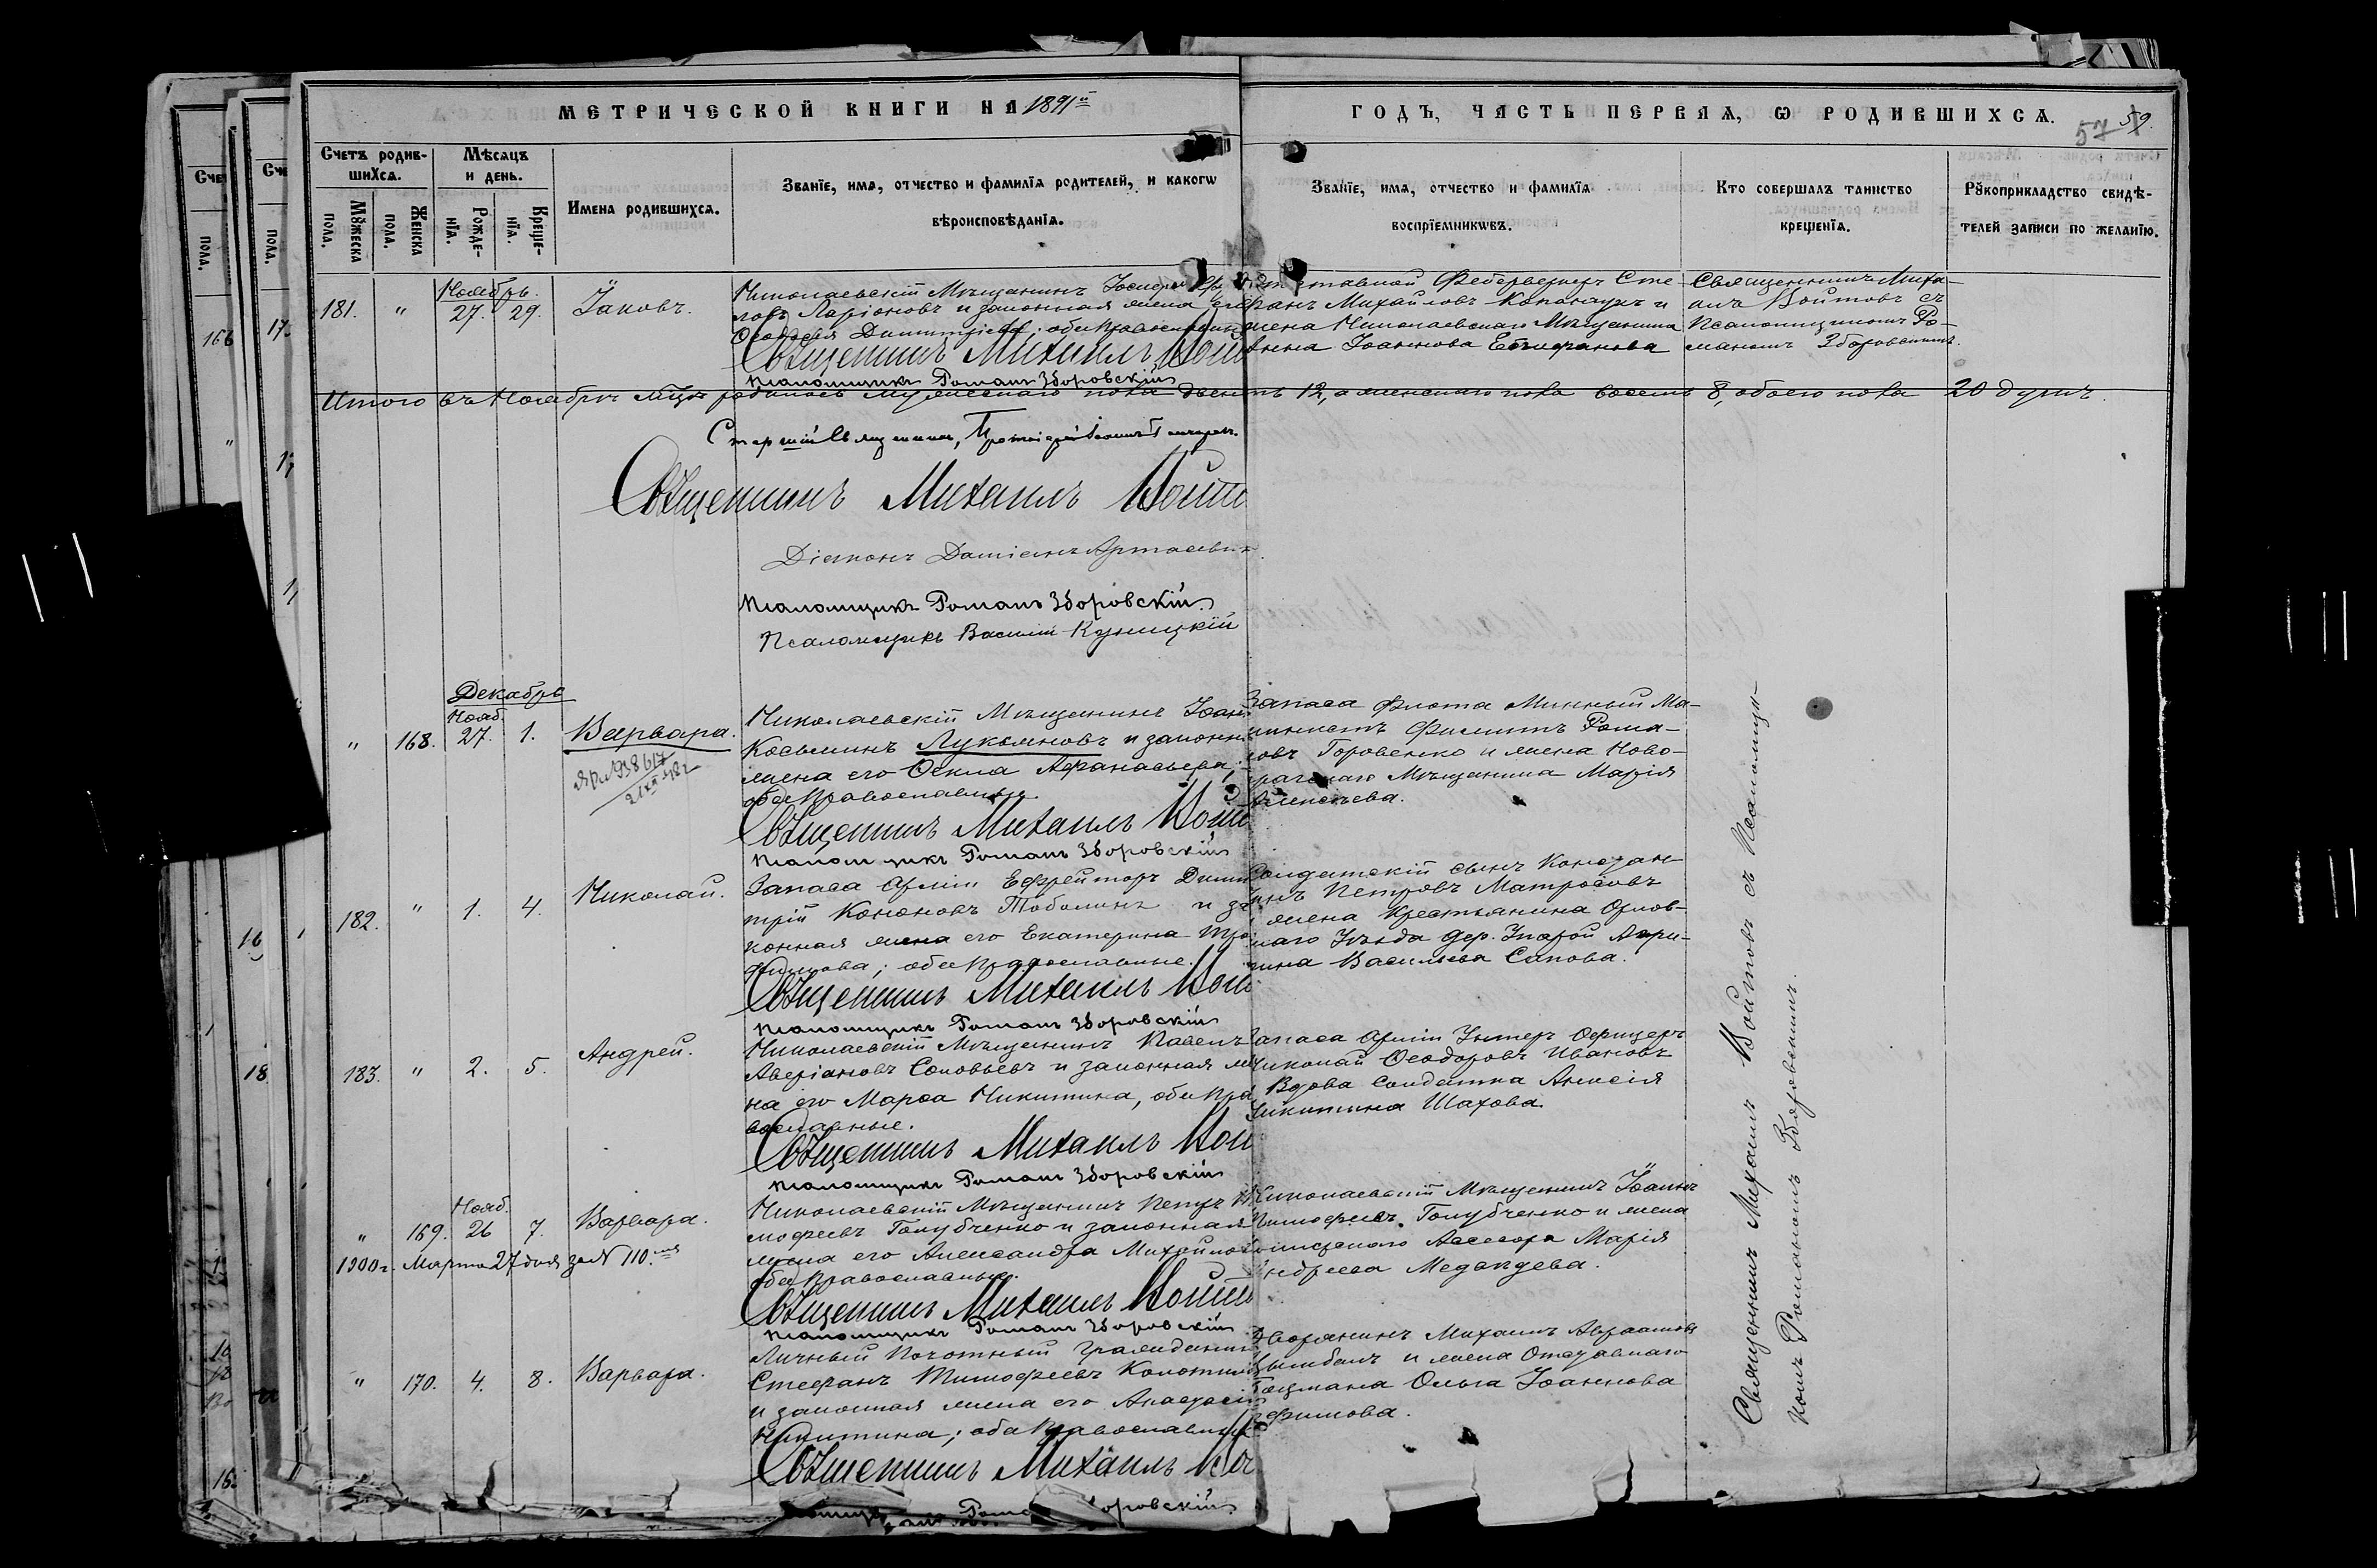 МЕТРИЧЕСКОЙ КНИГИ НА 1891й
ГОДЪ, ЧАСТЬ ПЕРВАЯ, Ѡ РОДИВШИХСѦ.
57 59.
Счетъ родив-
шихсѧ.
Мѣсѧцъ
и день.
Имена родившихсѧ.
Званїе, имѧ, отчество и фамилїѧ родителей, и какогѡ
вѣроисповѣданїѧ.
Званїе, имѧ, отчество и фамилїѧ
воспрїемникѡвъ.
Кто совершалъ таинство
крещенїѧ.
Рꙋкоприкладство свидѣ-
телей записи по желанїю.
Мꙋжеска
пола.
Женска
пола.
Рожде-
нїѧ.
Креще-
нїѧ.
Ноябрь.
181. " 27. 29. Іаковъ.
Николаевскій Мѣщанинъ
ловъ Ларіоновъ и законная жена его
Ѳеодосія Димитріева; оба Православные
Священникъ Михаилъ Войт
Псаломщикъ Романъ Зборовскій
Отставной Фейерверкеръ Сте-
фанъ Михайловъ и
жена Николаевскаго Мѣщанина
Анна Іоаннова Епифанова
Священникъ Миха-
илъ Войтовъ съ
Псаломщикомъ Ро-
маномъ Зборовскимъ.
Итого въ Ноябрѣ м-цѣ родилось мужескаго пола двенадцать 12, а женскаго пола восемь 8, обоего пола 20 душъ.
Старшій Священникъ, Протоіерей Іоаннъ
Священникъ Михаилъ Войт
Діаконъ Даміанъ
Псаломщикъ Романъ Зборовскій
Псаломщикъ Василій Куницкій
Декабрь
Нояб.
" 168. 27. 1. Варвара.
Николаевскій Мѣщанинъ Іоан
Косьминъ Лукьяновъ и законн
жена его Ѳекла Аѳанасьева;
оба Православные
Священникъ Михаилъ Войт
Псаломщикъ Романъ Зборовскій
Запаса Флота Минный Ма-
шинистъ Филиппъ Рома-
новъ Горовенко и жена Ново-
прагскаго Мѣщанина Марія
Алексѣева.
182. " 1. 4. Николай.
Запаса Арміи Ефрейторъ Дими
трій Кононовъ Тоболинъ и за
конная жена его Екатерина Тро
фимова; оба Православные.
Священникъ Михаилъ Войт
Псаломщикъ Романъ Зборовскій
Солдатскій сынъ Констан-
тинъ Петровъ Матросовъ
и жена Крестьянина Орлов-
скаго Уѣзда дер. Агри-
пина Васильева Сапова.
183. " 2. 5. Андрей.
Николаевскій Мѣщанинъ Павелъ
Аверіановъ Соловьевъ и законная же
на его Марѳа Никитина, оба Пра
вославные.
Священникъ Михаилъ Вой
Псаломщикъ Романъ Зборовскій
Запаса Арміи Унтеръ Офицеръ
Николай Ѳеодоровъ Ивановъ
и Вдова Солдатка Анисія
Никитина Шахова.
Нояб.
" 169. 26 7. Варвара.
1900 г. Марта 27 дня за № 110.
Николаевскій Мѣщанинъ Петръ Ти
мофеевъ Голубченко и законная
жена его Александра Михайлов
оба Православные.
Священникъ Михаилъ Войт
Псаломщикъ Романъ Зборовскій
Николаевскій Мѣщанинъ Іоаннъ
Тимофеевъ Голубченко и жена
Коллежскаго Асессора Марія
Андреева Медведева.
" 170. 4. 8. Варвара.
Личный Почетный Гражданинъ
Стефанъ Тимофеевъ
и законная жена его Анастасія
Никитина; оба Православные
Священникъ Михаилъ Во
Дворянинъ Михаилъ Авраамовъ
Цымбалъ и жена Отставнаго
Боцмана Ольга Іоаннова
Ефимова.
Священникъ Михаилъ Войтовъ съ Псаломщи-
комъ Романомъ Зборовскимъ.